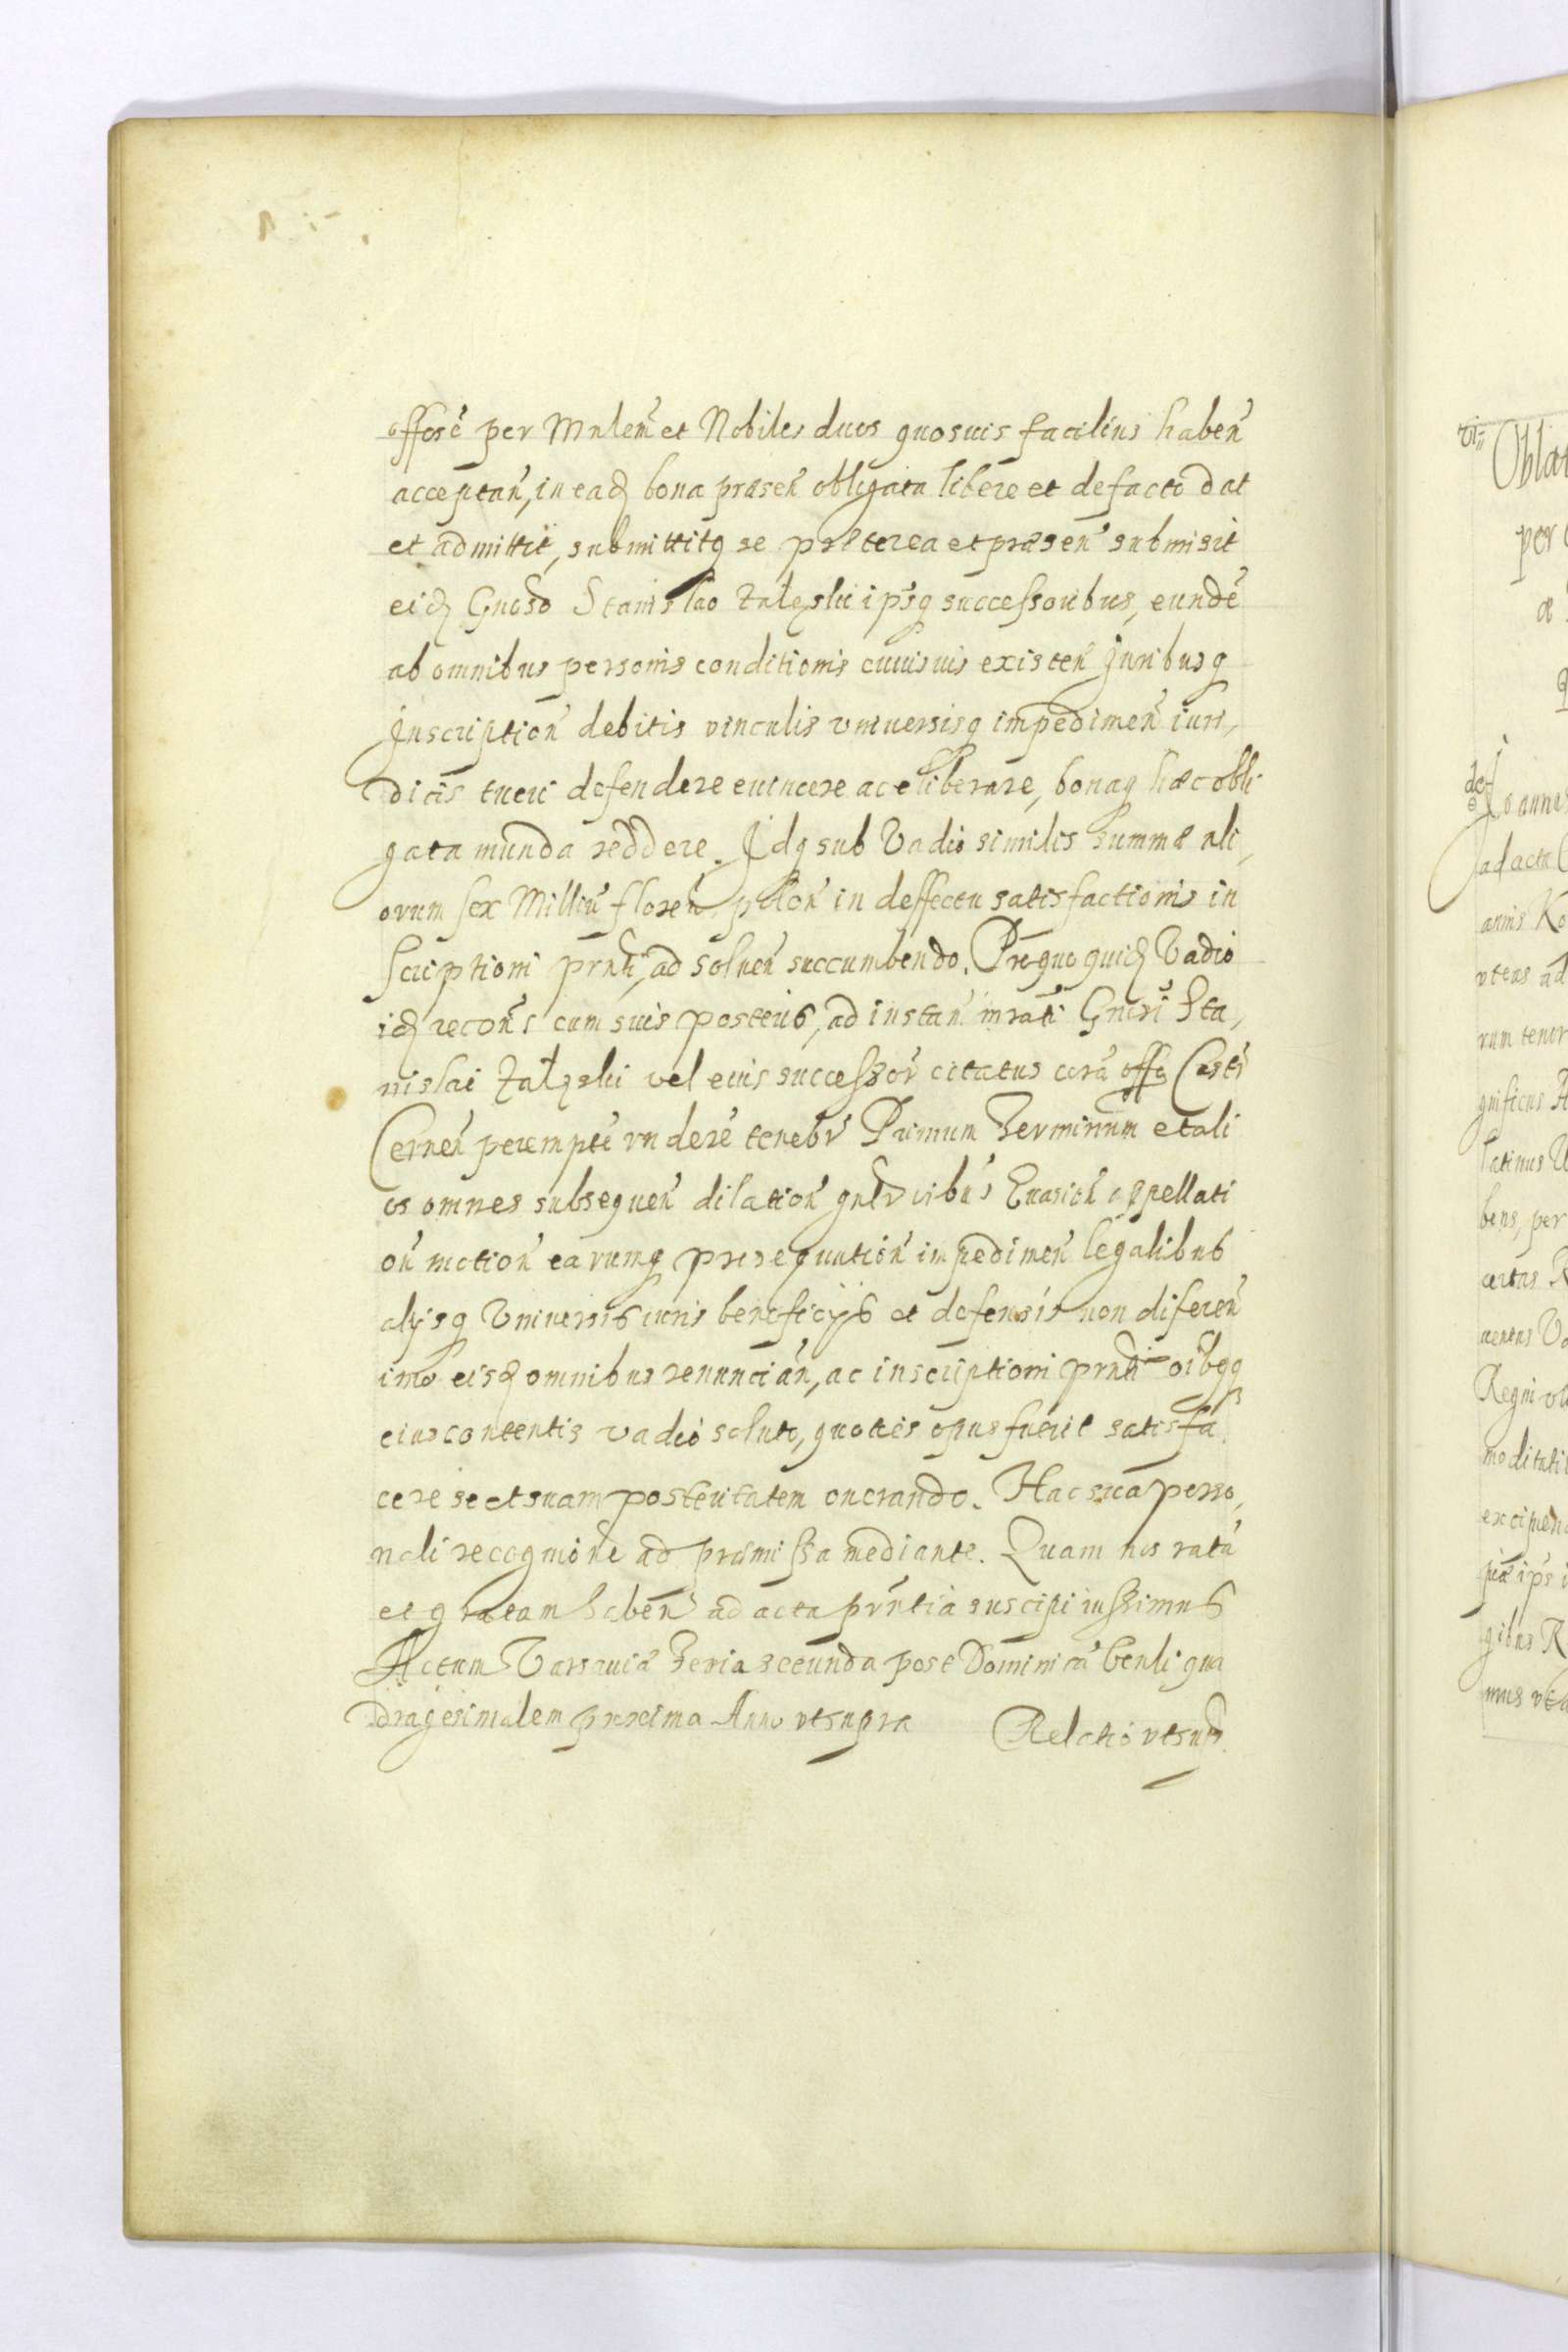 offosē per Mnlem̄ et Nobiles duos quosuis facilius haben̄
acceptan̄, in eadꝫ bona præsen̄ obligata libere et defacto dat
et admittit, submittitq se preterea et præsen̄ submisit
eidꝫ Gnoso Stanislao Załęski ipsq successoribus, eundē
ab omnibus personis conditionis cuiusuis existen̄ Juribusq
Inscription̄ debitis vinculis vniuersisq impedimen̄ iuri,
dicis tueri defendere euincere ac eliberare, bonaq hæc obli
gata munda reddere. Idq sub Vadio similis summæ ali,
orum sex Milliū floren̄ polon̄ in deffectu satisfactionis in
scriptioni prnti, ad soluen̄ succumbendo. Pro quo quidꝫ Vadio
idꝫ recon̄s cum suis posteris, ad instan̄ mrati Gnosi Sta,
nislai Załęski vel eius successor̄ citatus corā offo Castr̄
Cernen̄ peremptē rndere tenebr̄ Primum Terminum et ali
os omnes subsequen̄ dilation̄ gnlr̄ vibus Euasion̄ appellati
on̄ motion̄ earumq prosequution̄ impedimen̄ legalibus
alijsq Vniuersis iuris beneficijs et defensis non diferen̄
imo eisdꝫ omnibus renuncian̄, ac inscriptioni prnti oibqꝫ
eius contentis vadio soluto, quoties opus fuerit satisfa
cere se et suam posteritatem onerando. Hac sua perso,
nali recognione ad præmissa mediante. Quam nos ratā
et gratam haben̄ ad acta prntia suscipi iussimus
Actum Varsauiæ Feria secunda post Dominicā Conli qua
dragesimalem proxima Anno vt supra Relatio vt sup̄.
vi
Oblat
per
æ
def
Joannes
ad acta
annis Ko
vtens ad
rum tenor
gnificus A
latinus
bens, per
certas
Regni
moditati
excipien
gibus R
mus